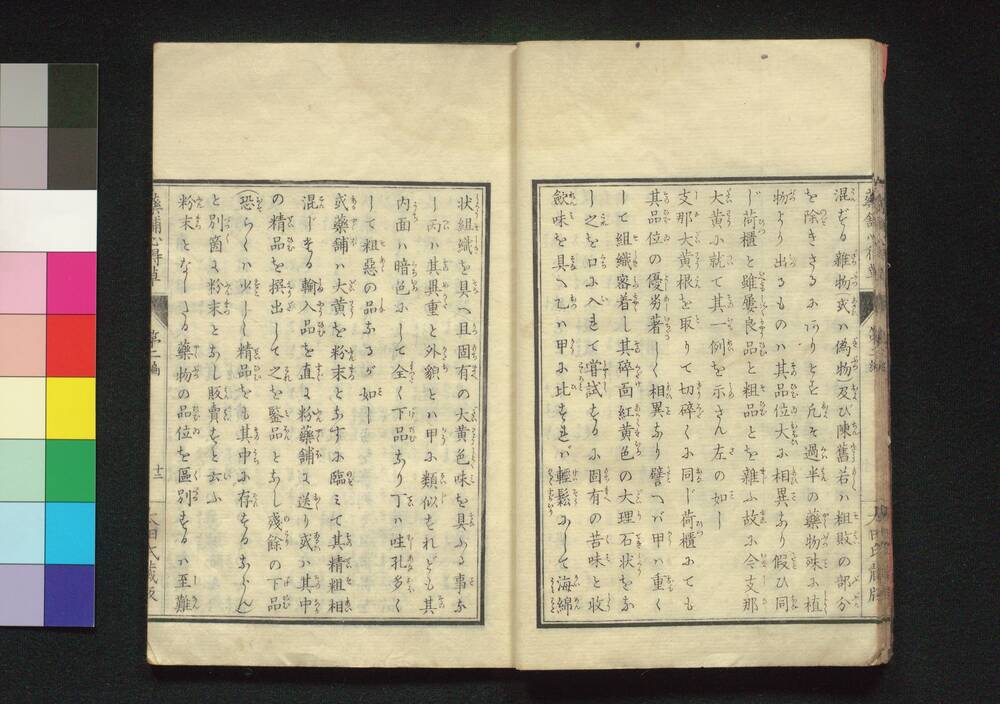 混ずる雜物或ハ偽物)及び陳舊若ハ粗敗の部分
を除きさるにありとす凡そ過半の藥物殊に植
物より出るものハ其品位大に相異あり假ひ同
じ荷櫃と雖屡良品と粗品とを雜ふ故に今支那
大黄に就て其一例を示さん左の如し
支那大黄根を取りて切碎くに同じ荷櫃にても
其品位の優劣著しく相異あり譬へバ甲ハ重く
して組織密着し其碎面紅黄色の大理石状をな
し之を口に入れて嘗試するに固有の苦味と收
斂味を具へ乙ハ甲に比すれバ輕鬆にして海綿
状組織を具へ且固有の大黄色味を具ふる事な
し丙ハ其異重と外貌とハ甲に類似すれども其
内面ハ暗色にして全く下品なり丁ハ蛀孔多く
して粗惡の品なるが如し
或藥舗ハ大黄を粉末となすに臨ミて其精粗相
混じする輸入品を直に粉藥舗に送り或ハ其中
の精品を撰出して之を鑒品となし殘餘の下品
(恐らくハ少しく精品をも其中に存するならん)
と別箇に粉末となし販賣すと云ふ
粉末となしたる藥物の品位を區別するハ至難
藥鋪心得草
第二編
十二
太田氏藏版